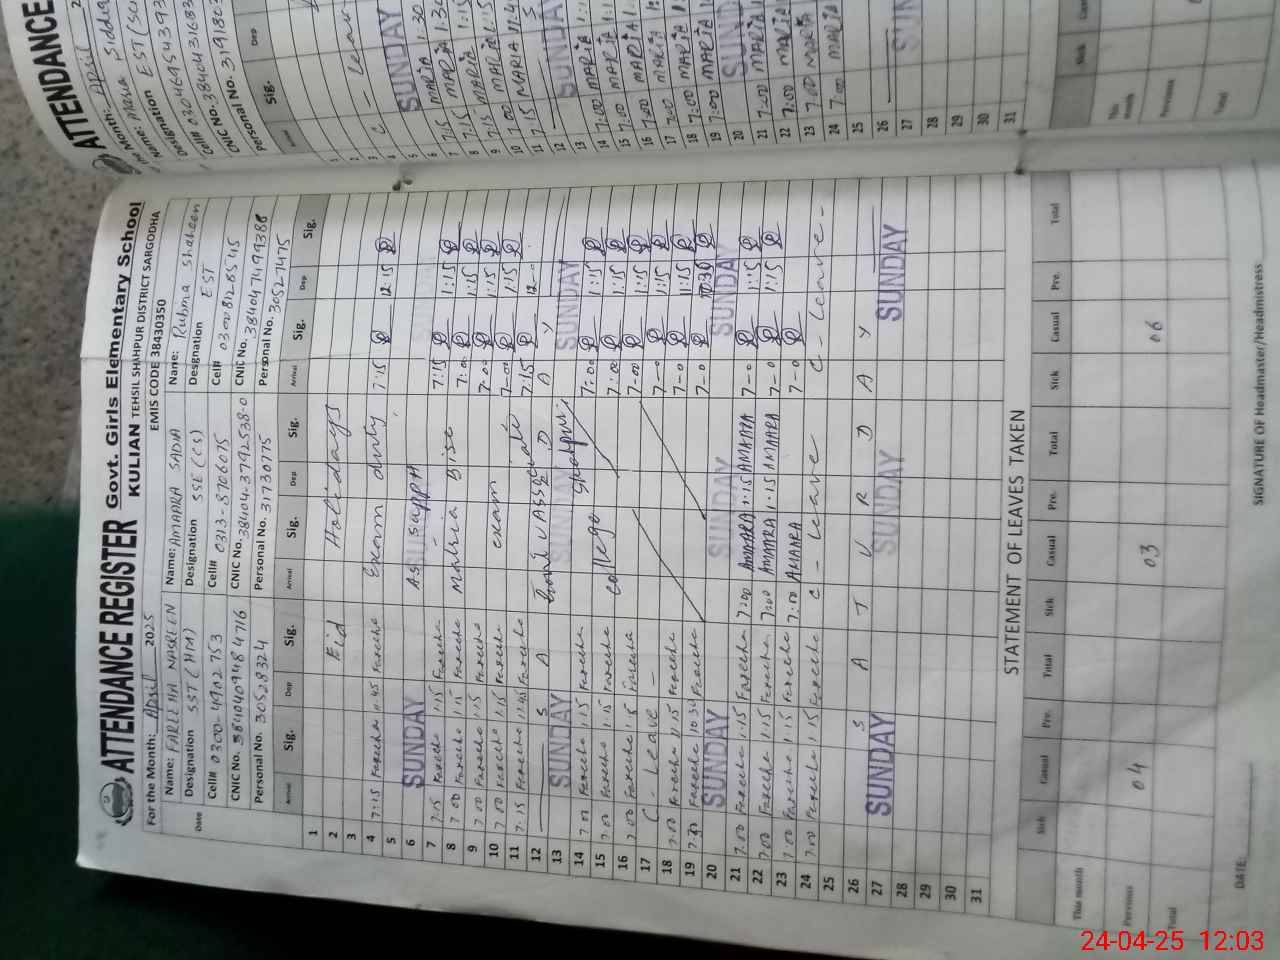 ATTENDANCE REGISTER Govt. Girls Elementary School
KULIAN TEHSIL SHAHPUR DISTRICT SARGODHA
For the Month: April 2025 EMIS CODE 38430350
Name: FAREEHA NASREEN Name: AMAARA SADIA Name: Rubma Shaheen
Designation SST (HM) Designation SSE (CS) Designation EST
Cell# 0300-4902753 Cell# 0313-8706075 Cell# 03008128545
CNIC No. 3840409484716 CNIC No. 38404-3792538-0 CNIC No. 384047499388
Personal No. 30528324 Personal No. 31730775 Personal No. 30527475
Date Arrival Sig. Dep Sig. Arrival Sig. Dep Sig. Arrival Sig. Dep Sig.
1
2 Eid Holidays
3
4 7:15 Fareeha 11:45 Fareeha Exam duty 7:15 12:15
5
6 SUNDAY
7 7:15 Fareeha 1:15 Fareeha 7:15 1:15
8 7:00 Fareeha 1:15 Fareeha 7:00 1:15
9 7:00 Fareeha 1:15 Fareeha 7-00 1:15
10 7:00 Fareeha 1:15 Fareeha exam 7-00 1:15
11 7:15 Fareeha 11:45 Fareeha 7:15 12-0
12 S A D A Y
13 SUNDAY SUNDAY SUNDAY
14 7:00 Fareeha 1:15 Fareeha 7:00 1:15
15 7:00 Fareeha 1:15 Fareeha college 7:00 1:15
16 7:00 Fareeha 1:15 Fareeha 7-00 1:15
17 C - Leave - 7-0 1:15
18 7:00 Fareeha 1:15 Fareeha 7-0 1:15
19 7:30 Fareeha 10:30 Fareeha 7-0 10:30
20 SUNDAY SUNDAY SUNDAY
21 7:00 Fareeha 1:15 Fareeha 7:00 AMAARA 1:15 AMAARA 7-0 1:15
22 7:00 Fareeha 1:15 Fareeha 7:00 AMAARA 1:15 AMAARA 7-0 1:15
23 7:00 Fareeha 1:15 Fareeha 7:00 AMAARA 7-0
24 7:00 Fareeha 1:15 Fareeha C - Leave C - Leave -
25
26 S A T U R D A Y
27 SUNDAY SUNDAY SUNDAY
28
29
30
31
STATEMENT OF LEAVES TAKEN
Sick Casual Pre. Total Sick Casual Pre. Total Sick Casual Pre. Total
This month
Previous 04 03 06
Total
DATE: SIGNATURE OF Headmaster/Headmistress
ATTENDANCE
Month: April
Designation EST
Personal No.
Sig. Dep
1
2
3 C - Leave
4
5 SUNDAY
6 7:15 MARIA 1:30
7 7:15 MARIA 1:30
8 7:15 MARIA 1:15
9 7:15 MARIA 1:15
10 7:00 MARIA
11 7:15 MARIA
12
13 SUNDAY
14 7:00 MARIA
15 7:00 MARIA
16 7:00 MARIA
17 7:00 MARIA
18 7:00 MARIA
19 7:00 MARIA
20 SUNDAY
21 7:00 MARIA
22 7:00 MARIA
23 7:00 MARIA
24 7:00 MARIA
25
26
27 SUNDAY
28
29
30
31
Sick
This month
Previous
Total
24-04-25 12:03